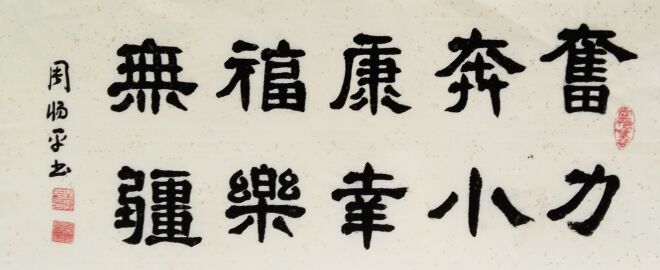 奮力
奔小
康幸
福樂
無疆
周平书